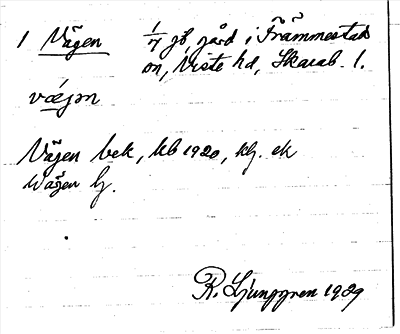 1 Vägen 1/7 jb, gård i Främmestads
sn, Viste hd, Skarab. l.
væjən
Vägen bek, kb 1920, hlj. ek
Wägen lj.
R. Ljunggren 1929